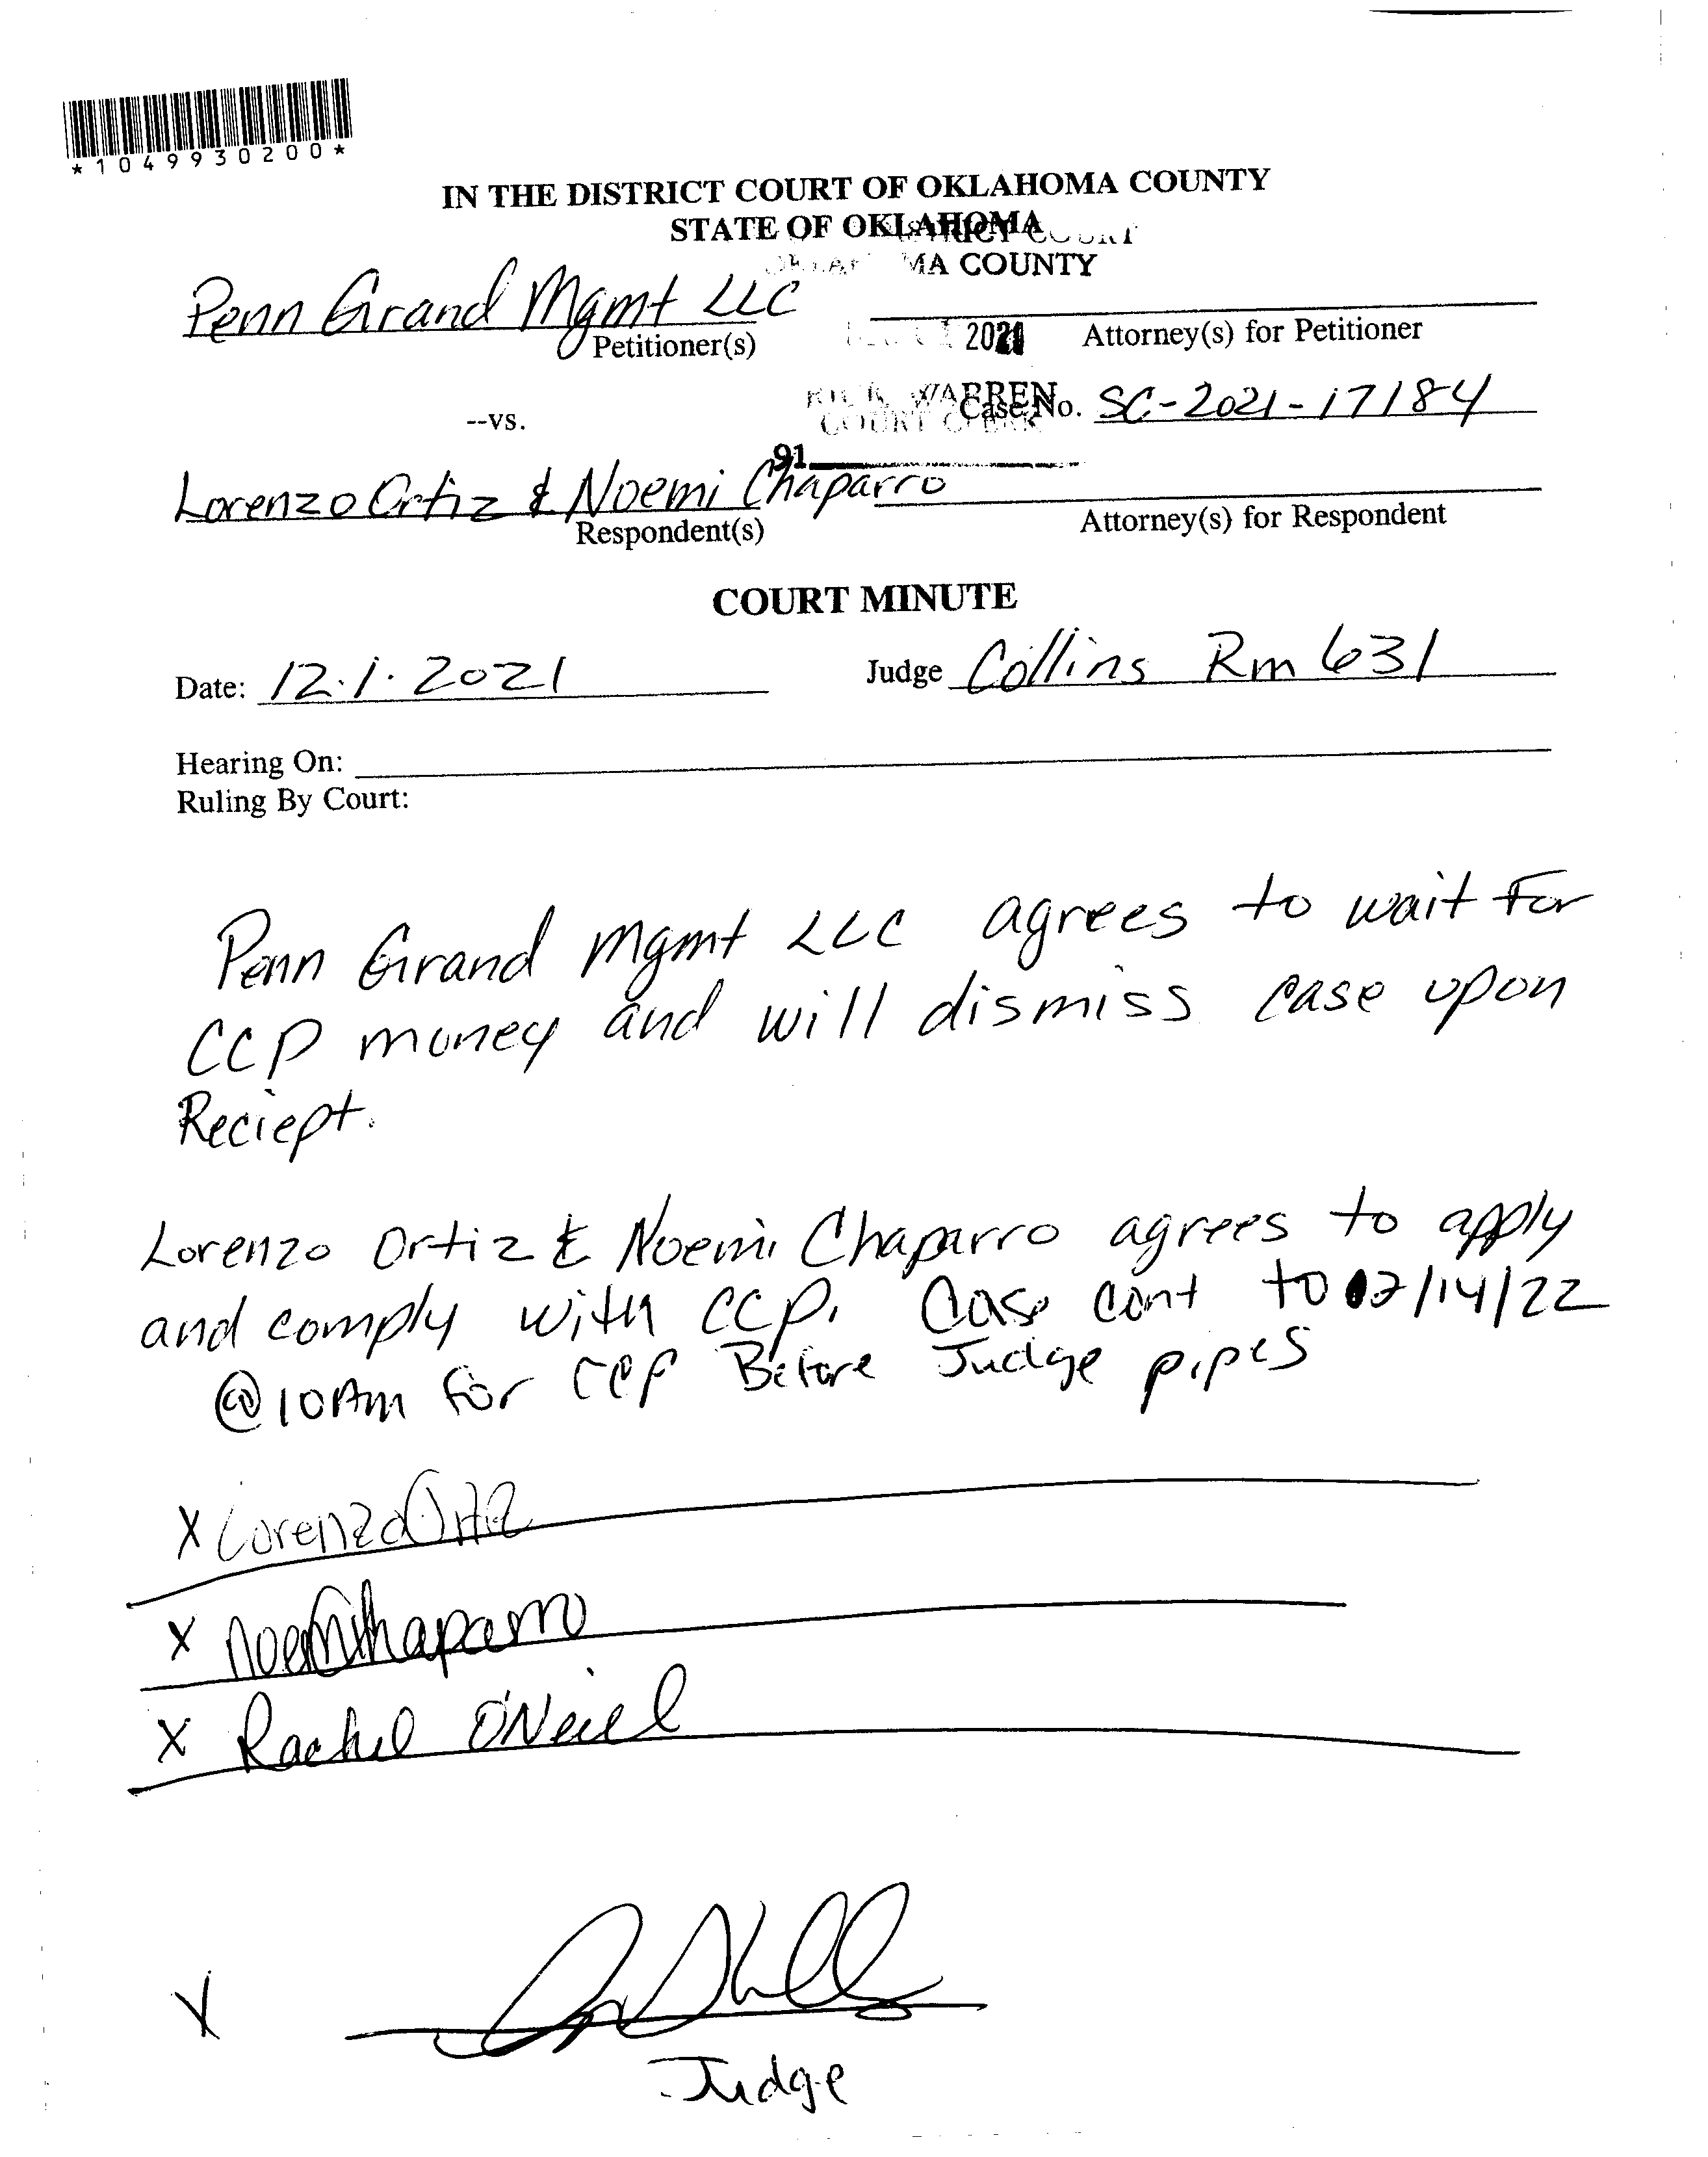 *1049930200*
IN THE DISTRICT COURT OF OKLAHOMA COUNTY
STATE OF OKLAHOMA
COUNTY
Penn Grand Mgmt LLC
Petitioner(s)
2021
Attorney(s) for Petitioner
RICK WARREN
COURT CLERK
--vs.
Case No. SC-2021-17184
91
Lorenzo Ortiz & Noemi Chaparro
Respondent(s)
Attorney(s) for Respondent
COURT MINUTE
Date: 12.1.2021
Judge Collins Rm 631
Hearing On:
Ruling By Court:
Penn Grand Mgmt LLC agrees to wait for
CCP money and will dismiss case upon
Reciept.
Lorenzo Ortiz & Noemi Chaparro agrees to apply
and comply with CCP. Case cont to /14/22
@10Am for CCP Before Judge pipes
X Lorenzo Ortiz
X Noemi Chaparro
X Rachel O'Neiel
X
Judge